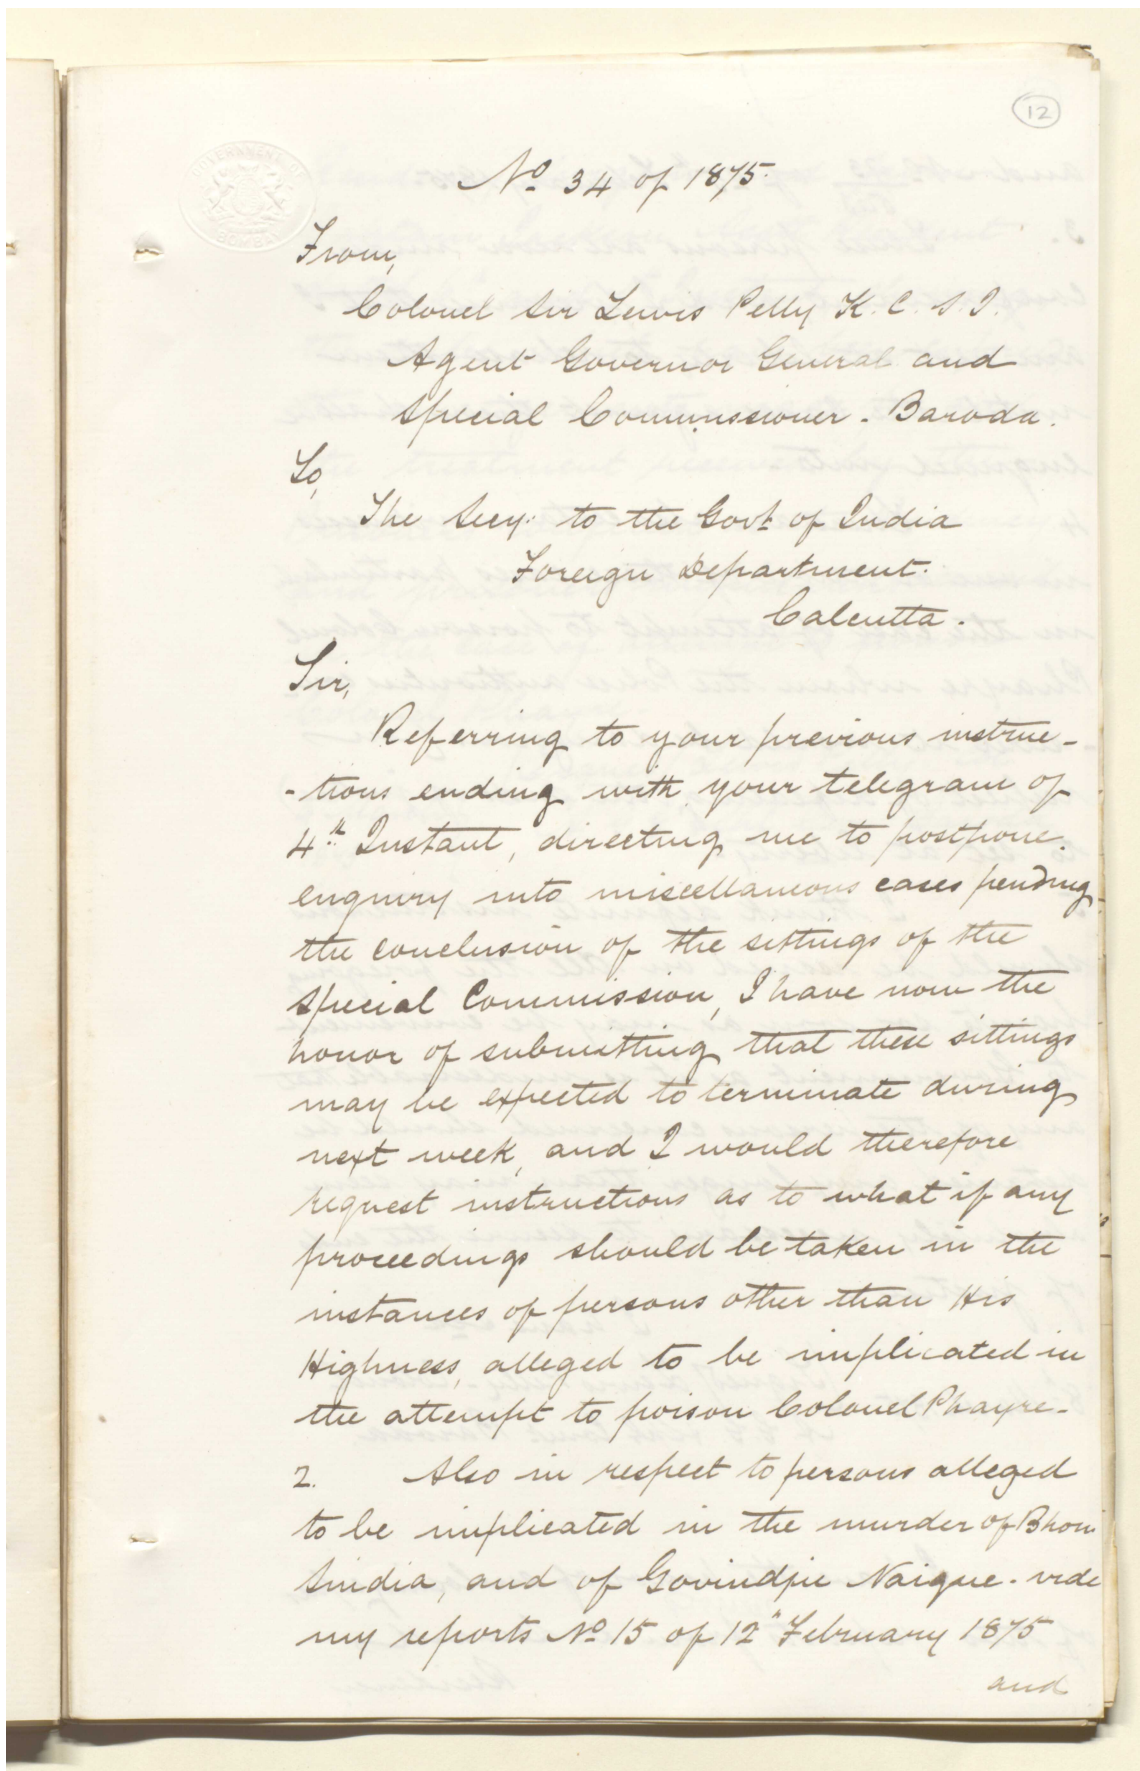 12
GOVERNMENT OF
BOMBAY
No 34 of 1875.
From,
Colonel Sir Lewis Pelly K. C. S. I.
Agent Governor General and
Special Commissioner - Baroda.
To,
The Secy: to the Govt of India
Foreign Department.
Calcutta.
Sir,
Referring to your previous instruc-
-tions ending with your telegram of
4th Instant, directing me to postpone
enquiry into miscellaneous cases pending
the conclusion of the sittings of the
Special Commission, I have now the
honor of submitting that these sittings
may be expected to terminate during
next week, and I would therefore
request instructions as to what if any
proceedings should be taken in the
instances of persons other than His
Highness, alleged to be implicated in
the attempt to poison Colonel Phayre-
2. Also in respect to persons alleged
to be implicated in the murder of
Sindia, and of Govindjie Naique - vide
my reports No 15 of 12" February 1875
and